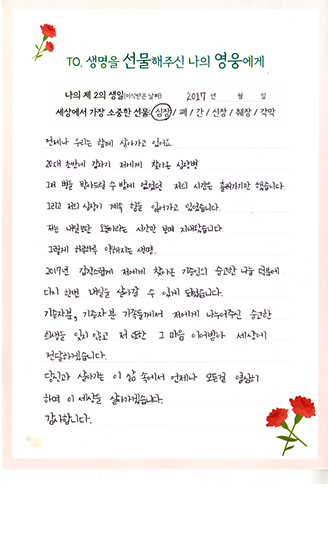 TO. 생명을 선물해주신 나의 영웅에게
나의 제 2의 생일(이식받은 날짜) 2017 년 월 일
세상에서 가장 소중한 선물: 심장 / 폐 / 간 / 신장 / 췌장 / 각막
언제나 우리는 함께 살아가고 있어요.
20대 초반에 갑자기 저에게 찾아온 심장병
그저 병을 받아드릴 수 밖에 없었던 저의 시간은 흘러가기만 했습니다.
그리고 저의 심장이 계속 힘을 잃어가고 있었습니다.
저는 내일보단 오늘이라는 시간만 보며 지내왔습니다.
그렇게 하루하루 약해지는 생명.
2017년 갑작스럽게 저에게 찾아온 기증인의 숭고한 나눔 덕분에
다시 한번 내일을 살아갈 수 있게 되었습니다.
기증자분, 기증자분 가족들께서 저에게 나눠주신 숭고한
희생을 잊지 않고 저 또한 그 마음 이어받아 세상에
전달하겠습니다.
당신과 살아가는 이 삶 속에서 언제나 모든걸 열심히
하며 이 세상을 살아가겠습니다.
감사합니다.